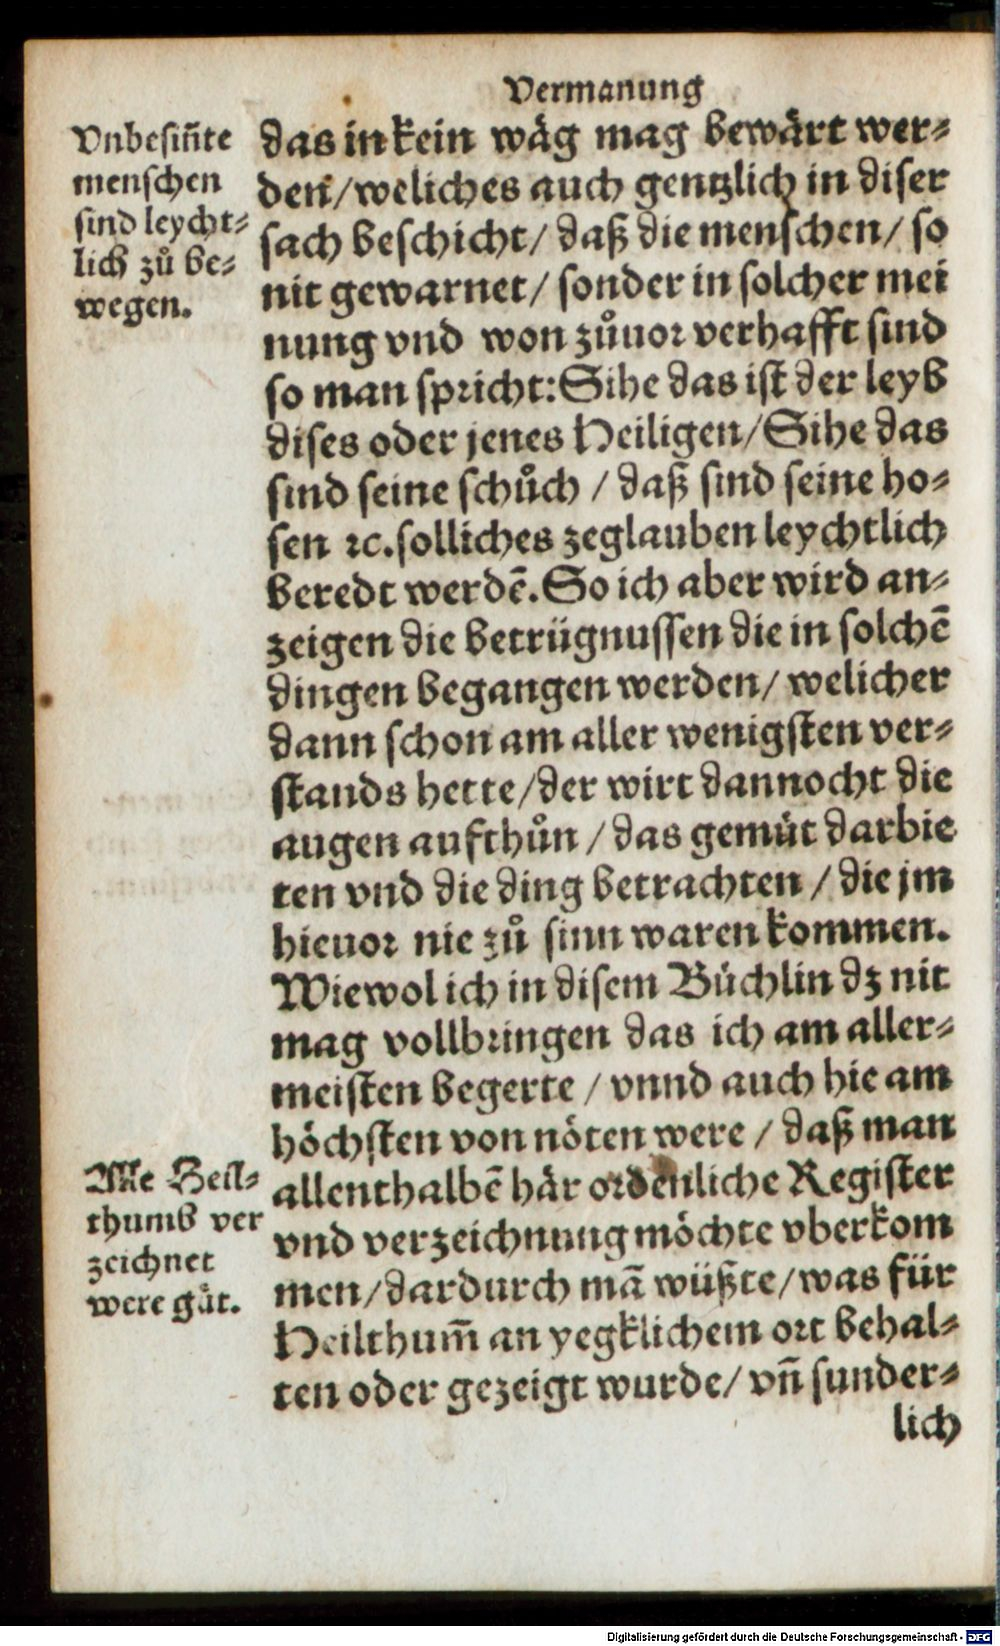 Vermanung
Vnbesiñte
menschen
sind leycht⸗
lich zů be⸗
wegen.
das in kein wäg mag bewärt wer⸗
den/weliches auch gentzlich in diser
sach beschicht/ daß die menschen/ so
nit gewarnet/ sonder in solcher mei
nung vnd won zůuor verhafft sind
so man spricht: Sihe das ist der leyb
dises oder jenes Heiligen/Sihe das
sind seine schůch / daß sind seine ho⸗
sen ꝛc. solliches zeglauben leychtlich
beredt werdē. So ich aber wird an⸗
zeigen die betrügnussen die in solchē
dingen begangen werden/ welicher
dann schon am aller wenigsten ver⸗
stands hette/der wirt dannocht die
augen aufthůn / das gemüt darbie
ten vnd die ding betrachten / die jm
hieuor nie zů sinn waren kommen.
Wiewol ich in disem Büchlin dz nit
mag vollbringen das ich am aller⸗
meisten begerte / vnnd auch hie am
höchsten von nöten were / daß man
allenthalbē här ordenliche Register
vnd verzeichnung möchte vberkom
men/dardurch mā wüßte/was für
Heilthum̃ an yegklichem ort behal⸗
ten oder gezeigt wurde/ vñ sunder⸗
lich
Alle Heil⸗
thumb ver
zeichnet
were gůt.
Digitalisierung gefördert durch die Deutsche Forschungsgemeinschaft - DFG